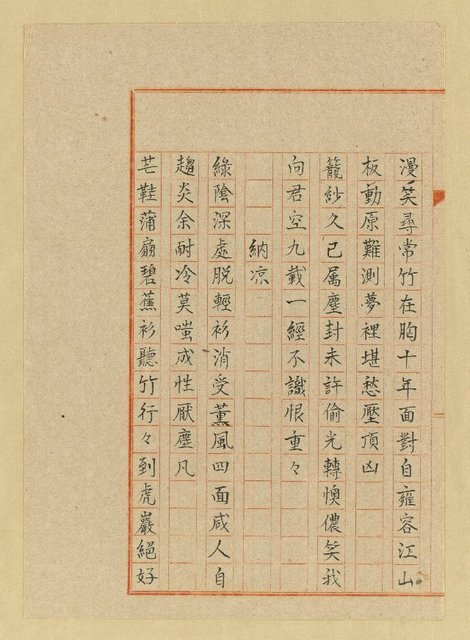 漫笑尋常竹在胸十年面對自雍容江山
板動原難測夢裡堪愁壓頂凶
籠紗久已属塵封未許偷光轉懊儂笑我
向君空九載一經不識恨重々
納凉
綠陰深處脱輕衫消受薰風四面咸人自
趨炎余耐冷莫嗤成性厭塵凡
芒鞋蒲扇碧蕉衫聽竹行々到虎巖絕好